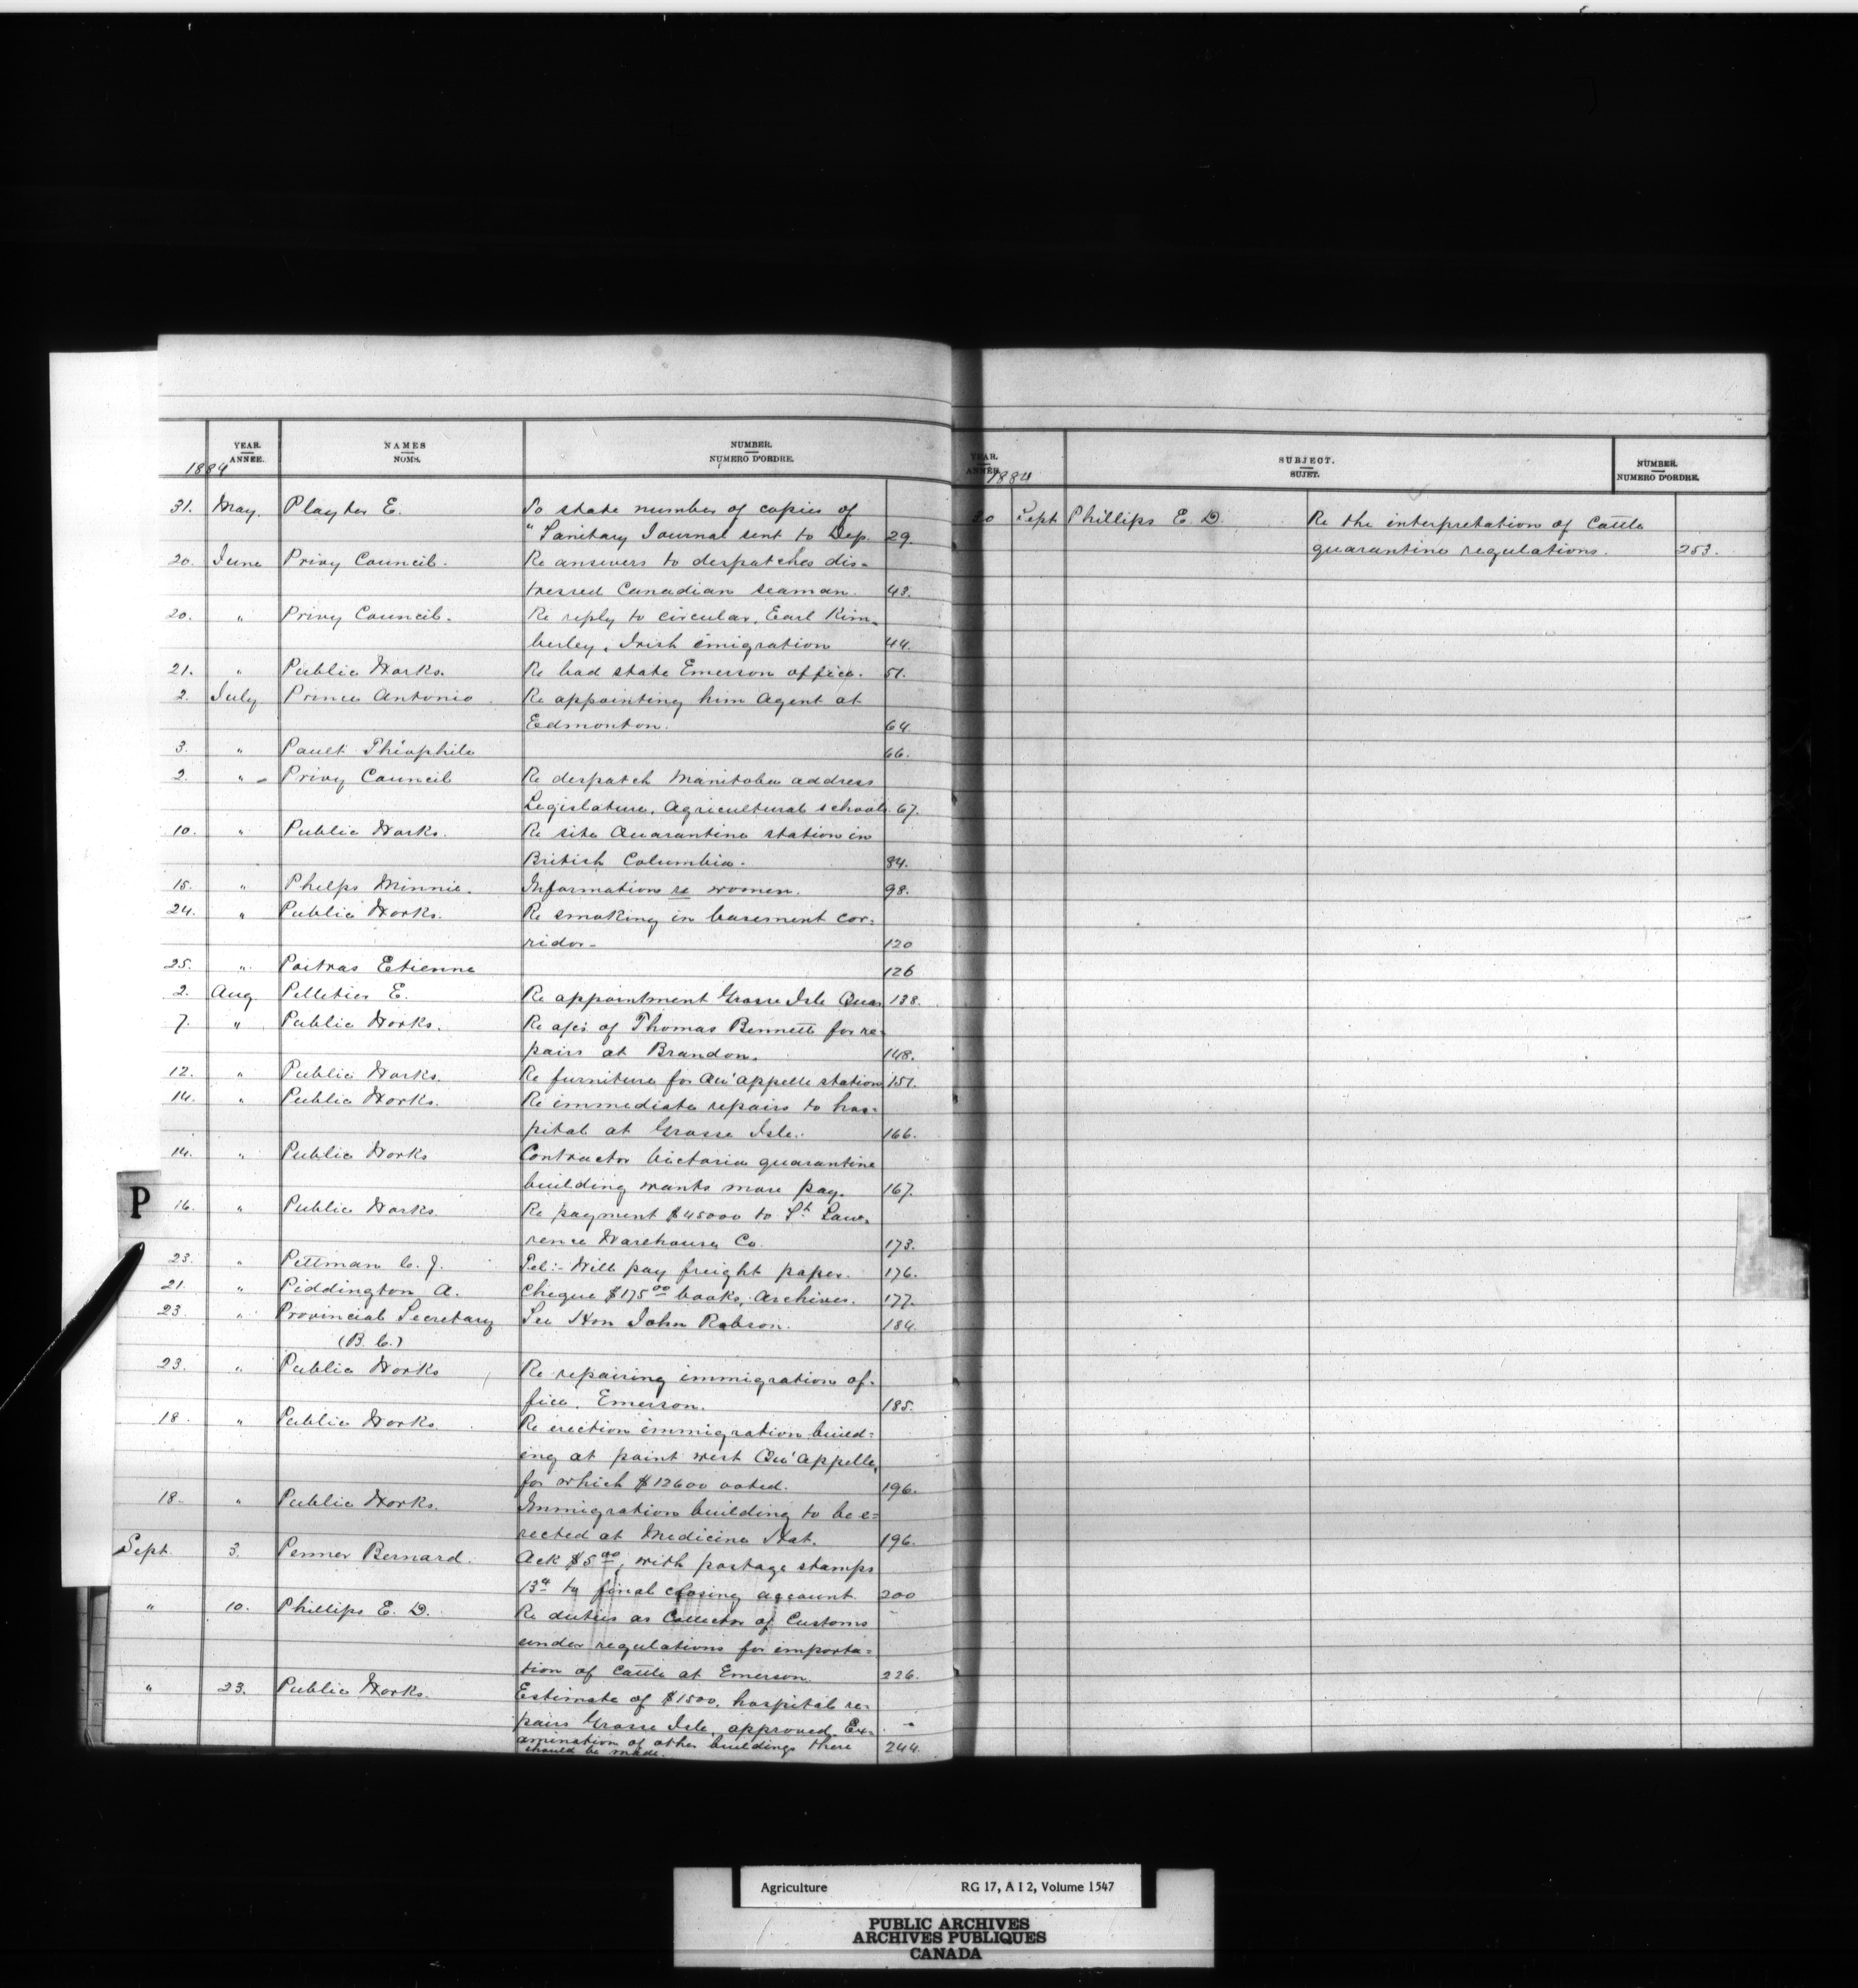 YEAR. NAMES NUMBER.
ANNÉE. NOMS. NUMERO D'ORDRE.
1884
31. May. Playter E. To state number of copies of
" Sanitary Journal sent to Dep. 29.
20. June Privy Council. Re answers to despatches dis=
tressed Canadian seaman. 43.
20. " Privy Council. Re reply to circular, Earl Kim=
berley, Irish emigration 44.
21. " Public Works. Re bad state Emerson office. 51.
2. July Prince Antonio. Re appointing him Agent at
Edmonton. 64.
3. " Pault Théophile 66.
2. " Privy Council Re despatch Manitoba address
Legislature, Agricultural schools 67.
10. " Public Works. Re site Quarantine station in
British Columbia. 84.
15. " Phelps Minnie. Information re women. 98.
24. " Public Works. Re smoking in basement cor=
ridor. 120
25. " Poitras Etienne 126
2. Aug Pelletier E. Re appointment Grosse Isle Quar 138.
7. " Public Works. Re a/c of Thomas Bennett for re=
pairs at Brandon. 148.
12. " Public Works. Re furniture for Qu'appelle station 151.
14. " Public Works. Re immediate repairs to hos=
pital at Grosse Isle. 166.
14. " Public Works Contractor Victoria quarantine
building wants more pay. 167.
P
16. " Public Works Re payment $45000 to St. Law=
rence Warehouse Co. 173.
23. " Pittman C. J. Tel:- Will pay freight paper. 176.
21. " Piddington A. Cheque $175.00 books, Archives. 177.
23. " Provincial Secretary See Hon John Robson. 184.
(B. C.)
23. " Public Works Re repairing immigration of=
fice, Emerson. 185.
18. " Public Works. Re erection immigration build=
ing at point west Qu'Appelle,
for which $12600 voted. 196.
18. " Public Works. Immigration building to be e=
rected at Medicine Hat. 196.
Sept. 3. Penner Bernard. Ack $5.00, with postage stamps
13c to final closing account. 200
" 10. Phillips E. D. Re duties as Collector of Customs
under regulations for importa=
tion of Cattle at Emerson. 226.
" 23. Public Works. Estimate of $1500, hospital re=
pairs Grosse Isle, approved. Ex=
amination of other buildings there 244.
should be made.
YEAR. SUBJECT. NUMBER.
ANNÉE. SUJET. NUMERO D'ORDRE.
1884
30 Sept Phillips E. D. Re the interpretation of Cattle
quarantine regulations. 253.
Agriculture RG 17, A I 2, Volume 1547
PUBLIC ARCHIVES
ARCHIVES PUBLIQUES
CANADA